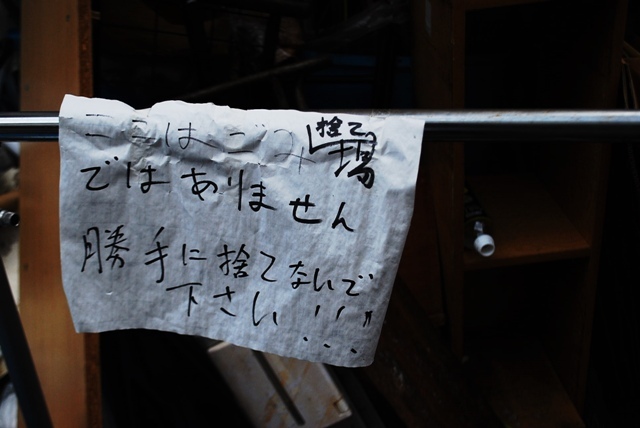 ここはごみ捨て場
ではありません
勝手に捨てないで
下さい!!!